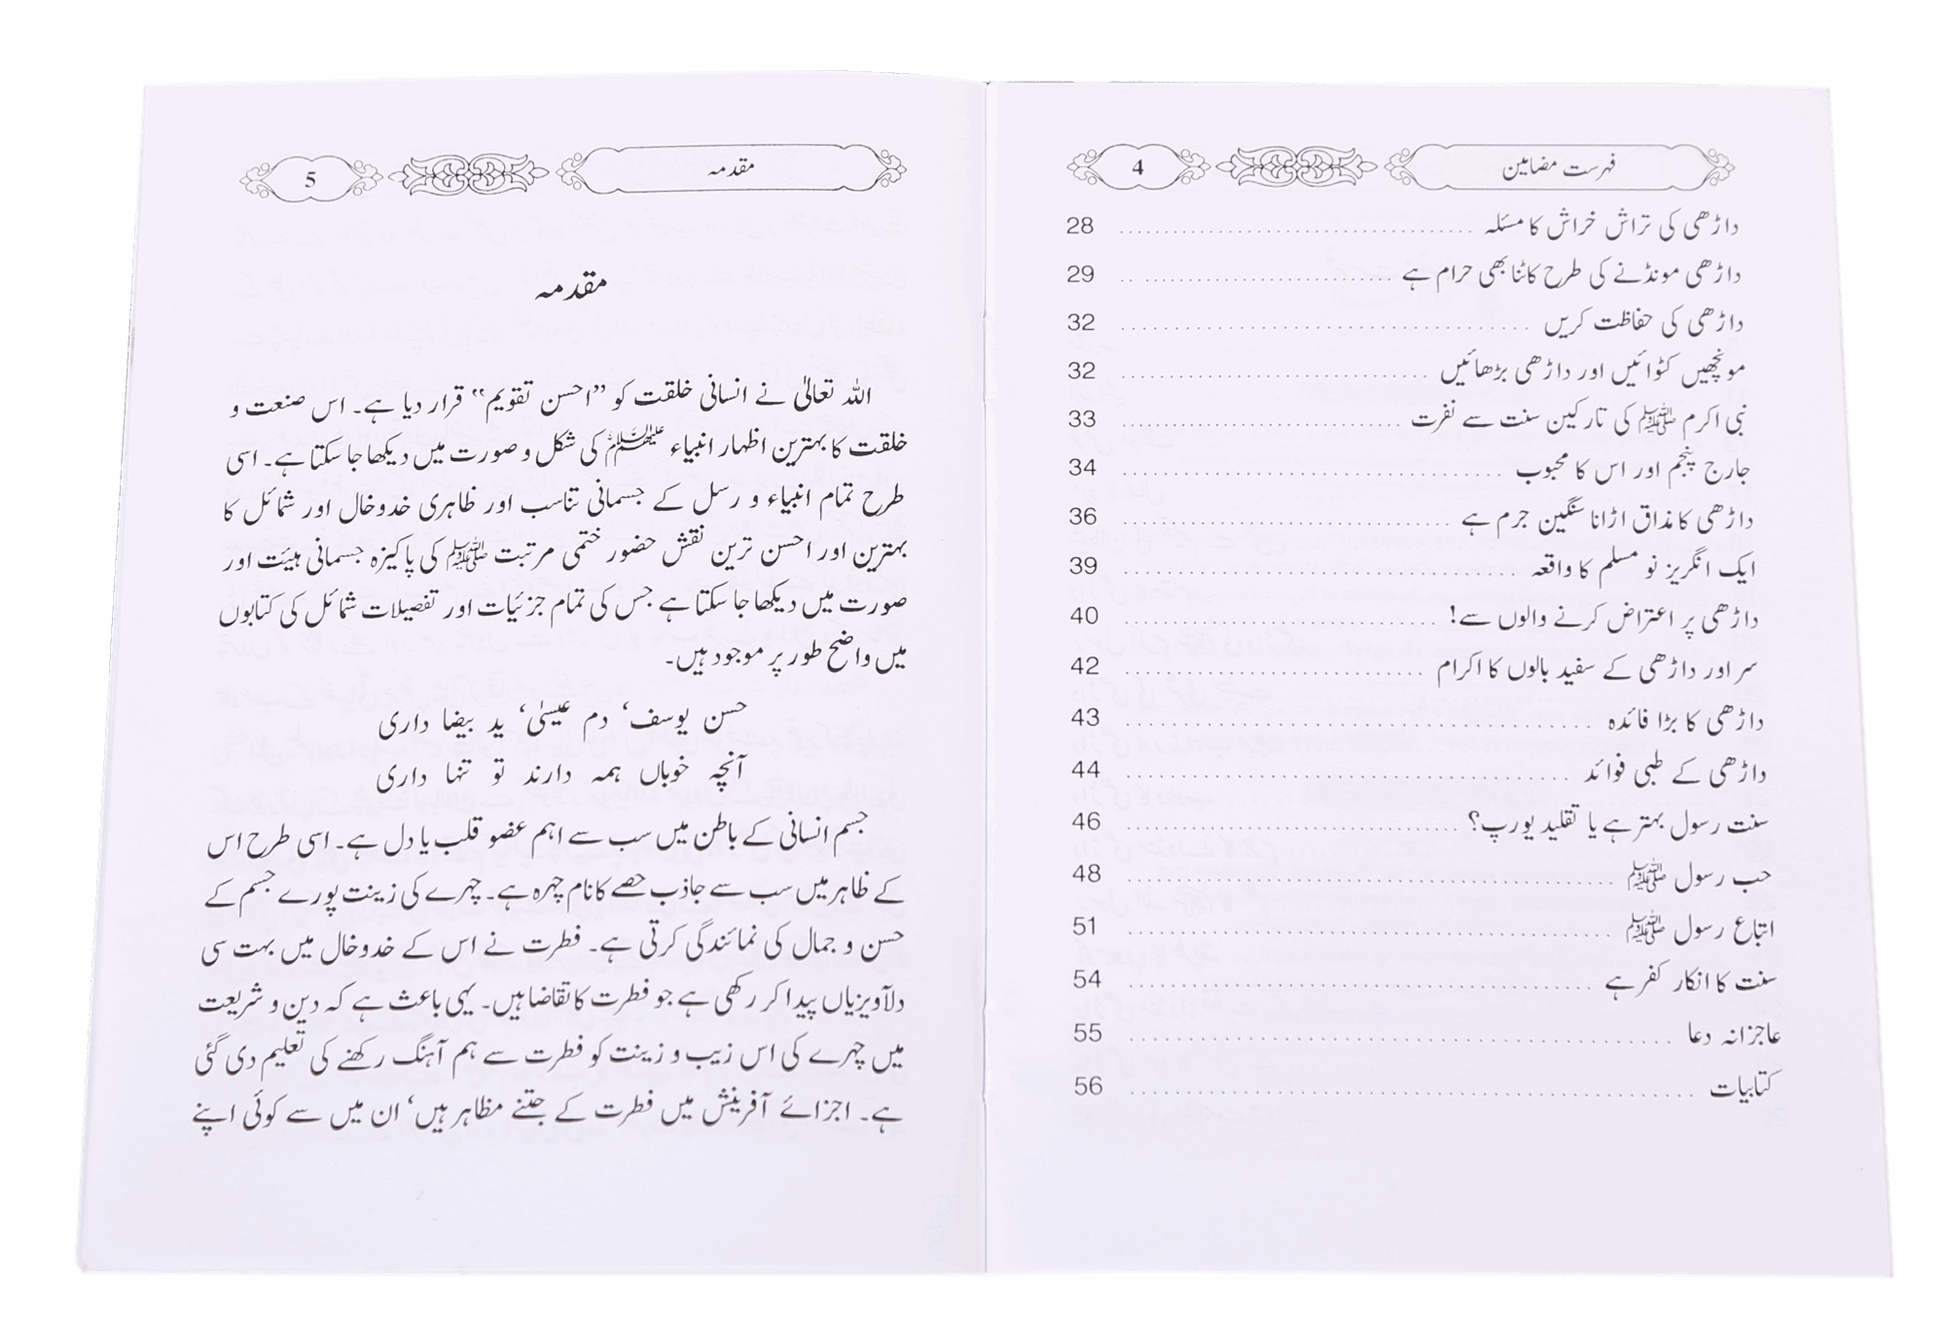 فہرست مضامین 4
داڑھی کی تراش خراش کا مسئلہ ........ 28
داڑھی مونڈنے کی طرح کاٹنا بھی حرام ہے ........ 29
داڑھی کی حفاظت کریں ........ 32
مونچھیں کٹوائیں اور داڑھی بڑھائیں ........ 32
نبی اکرم ﷺ کی تارکین سنت سے نفرت ........ 33
جارج پنجم اور اس کا محبوب ........ 34
داڑھی کا مذاق اڑانا سنگین جرم ہے ........ 36
ایک انگریز نو مسلم کا واقعہ ........ 39
داڑھی پر اعتراض کرنے والوں سے! ........ 40
سر اور داڑھی کے سفید بالوں کا اکرام ........ 42
داڑھی کا بڑا فائدہ ........ 43
داڑھی کے طبی فوائد ........ 44
سنت رسول بہتر ہے یا تقلید یورپ؟ ........ 46
حب رسول ﷺ ........ 48
اتباع رسول ﷺ ........ 51
سنت کا انکار کفر ہے ........ 54
عاجزانہ دعا ........ 55
کتابیات ........ 56
مقدمہ 5
مقدمہ
اللہ تعالیٰ نے انسانی خلقت کو ”احسن تقویم“ قرار دیا ہے۔ اس صنعت و
خلقت کا بہترین اظہار انبیاء علیہم السلام کی شکل و صورت میں دیکھا جا سکتا ہے۔ اسی
طرح تمام انبیاء و رسل کے جسمانی تناسب اور ظاہری خدوخال اور شمائل کا
بہترین اور احسن ترین نقش حضور ختمی مرتبت ﷺ کی پاکیزہ جسمانی ہیئت اور
صورت میں دیکھا جا سکتا ہے جس کی تمام جزئیات اور تفصیلات شمائل کی کتابوں
میں واضح طور پر موجود ہیں۔
حسن یوسف‘ دم عیسیٰ‘ ید بیضا داری
آنچہ خوباں ہمہ دارند تو تنہا داری
جسم انسانی کے باطن میں سب سے اہم عضو قلب یا دل ہے۔ اسی طرح اس
کے ظاہر میں سب سے جاذب حصے کا نام چہرہ ہے۔ چہرے کی زینت پورے جسم کے
حسن و جمال کی نمائندگی کرتی ہے۔ فطرت نے اس کے خدوخال میں بہت سی
دلآویزیاں پیدا کر رکھی ہے جو فطرت کا تقاضا ہیں۔ یہی باعث ہے کہ دین و شریعت
میں چہرے کی اس زیب و زینت کو فطرت سے ہم آہنگ رکھنے کی تعلیم دی گئی
ہے۔ اجزائے آفرینش میں فطرت کے جتنے مظاہر ہیں‘ ان میں سے کوئی اپنے